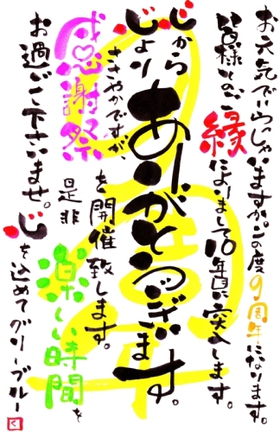 お元気でいらっしゃいますか。この度9周年になります。
皆様とのご縁によりまして10年目に突入します。
心から
心よりありがとうございます。
ささやかですが、
感謝祭を開催致します。
是非楽しい時間を
お過ごし下さいませ。
心を込めてグリーブルー